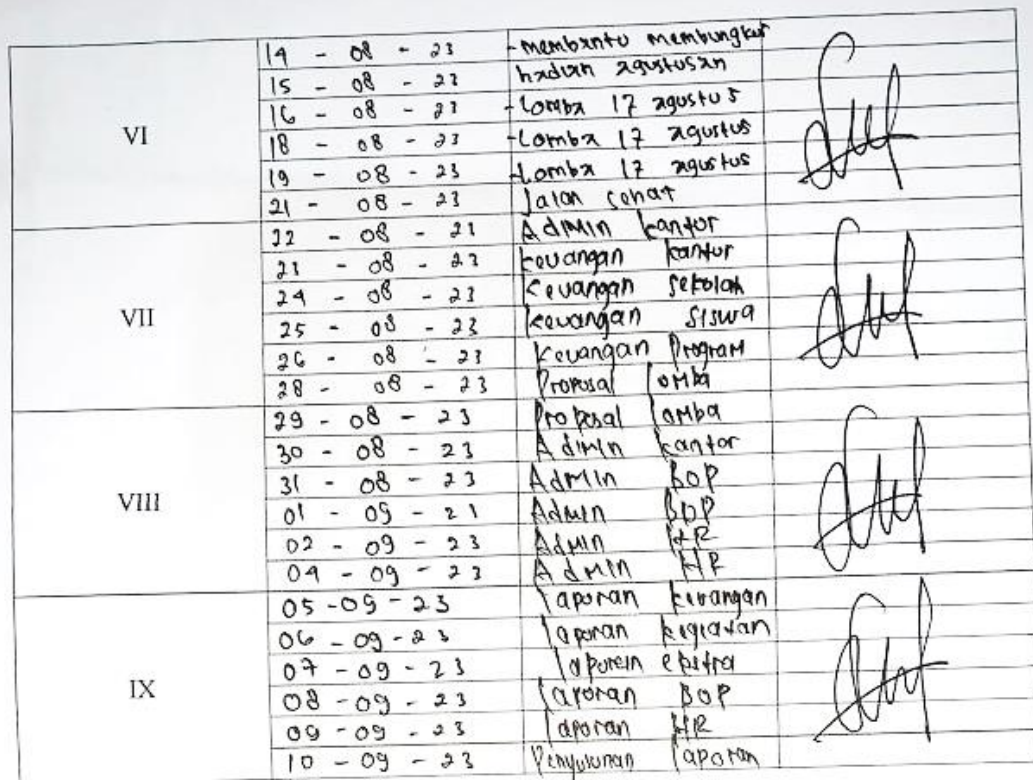 VI
14 - 08 - 23 - membantu membungkus
15 - 08 - 23 hadiah agustusan
16 - 08 - 23 - Lomba 17 agustus
18 - 08 - 23 - Lomba 17 agustus
19 - 08 - 23 - Lomba 17 agustus
21 - 08 - 23 Jalan sehat
VII
22 - 08 - 23 Admin kantor
23 - 08 - 23 keuangan kantor
24 - 08 - 23 keuangan sekolah
25 - 08 - 23 keuangan siswa
26 - 08 - 23 keuangan Program
28 - 08 - 23 Proposal lomba
VIII
29 - 08 - 23 Proposal lomba
30 - 08 - 23 Admin kantor
31 - 08 - 23 Admin BOP
01 - 09 - 23 Admin BOP
02 - 09 - 23 Admin HR
04 - 09 - 23 Admin HR
IX
05 - 09 - 23 laporan keuangan
06 - 09 - 23 laporan kegiatan
07 - 09 - 23 laporan
08 - 09 - 23 laporan BOP
09 - 09 - 23 laporan HR
10 - 09 - 23 Penyusunan laporan